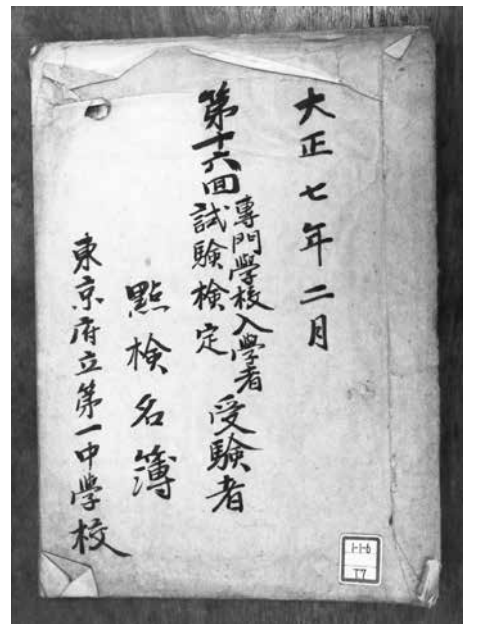 大正七年二月
第十六回専門學校入學者試験検定受験者
點検名簿
東京府立第一中學校
1-1-6
T7